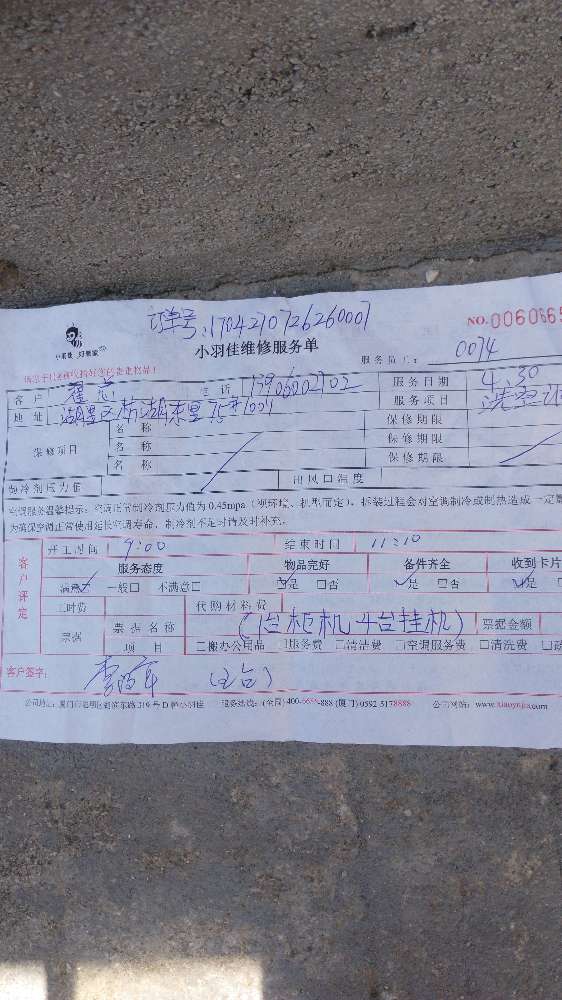 订单号:1704210726260007
小羽佳维修服务单
NO.0060665
服务员工: 0074
客户 电话 服务日期 4.30
地址 湖里区 湖东里 服务项目 洗空调
保修项目 名称 保修期限
名称 保修期限
名称 保修期限
制冷剂压力值 出风口温度
空调服务温馨提示:空调正常制冷剂压力值为0.45mpa(视环境、机型而定),拆装过程会对空调制冷或制热造成一定
为确保空调正常使用延长空调寿命,制冷剂不足时请及时补充。
开工时间 9:00 结束时间 11:10
客户评定
服务态度 物品完好 备件齐全 收到卡片
满意 一般□ 不满意□ 是 □否 是 □否 是
工时费 代购材料费
票据 票据名称 (1台柜机4台挂机) 票据金额
项目 □搬办公用品 □ 务费 □清洁费 □空调服务费 □清洗费
客户签字: (5台)
公司地址: 厦门市思明区湖滨东路319号D幢小羽佳 服务热线: (全国)400-6655-888 (厦门)0592-5178888 公司网站: www.xiaoyujia.com